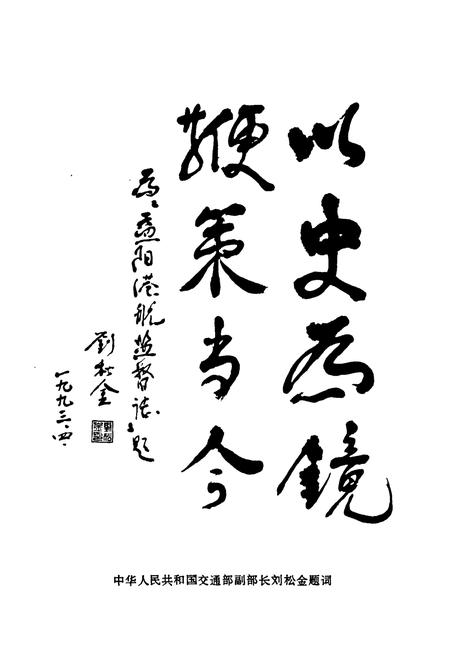 以史为镜
鞭策当今
为《益阳港航监督志》题
劉松金
一九九三.四.
中华人民共和国交通部副部长刘松金题词